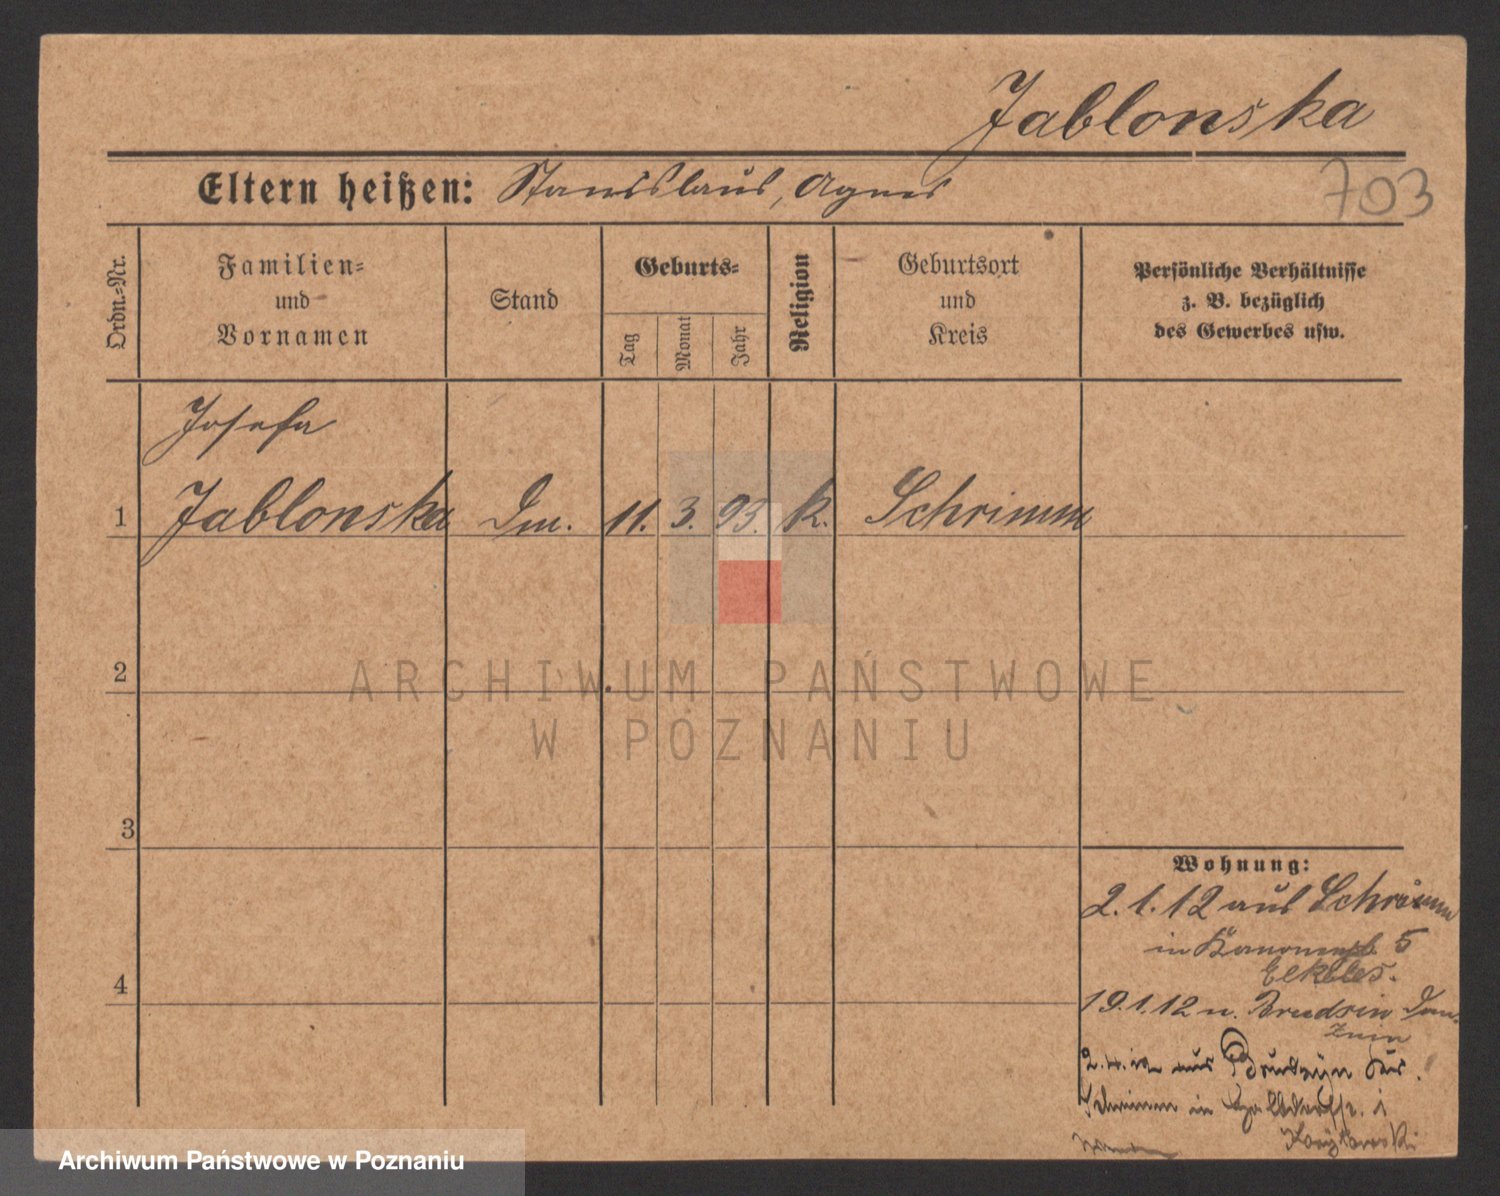 Jablonska
Eltern heißen: Stanislaus, Agnes
703
Ordn.=Nr.
Familien=
und
Vornamen
Stand
Geburts=
Tag
Monat
Jahr
Religion
Geburtsort
und
Kreis
Persönliche Verhältnisse
z. B. bezüglich
des Gewerbes usw.
Josefa
1 Jablonska Dm. 11. 3. 93. k. Schrimm
2
3
4
Wohnung:
2.1.12 aus Schrimm
in 5
Elkeles.
19.1.12 n.
Znin
aus
Schrimm in
ARCHIWUM PAŃSTWOWE
W POZNANIU
Archiwum Państwowe w Poznaniu